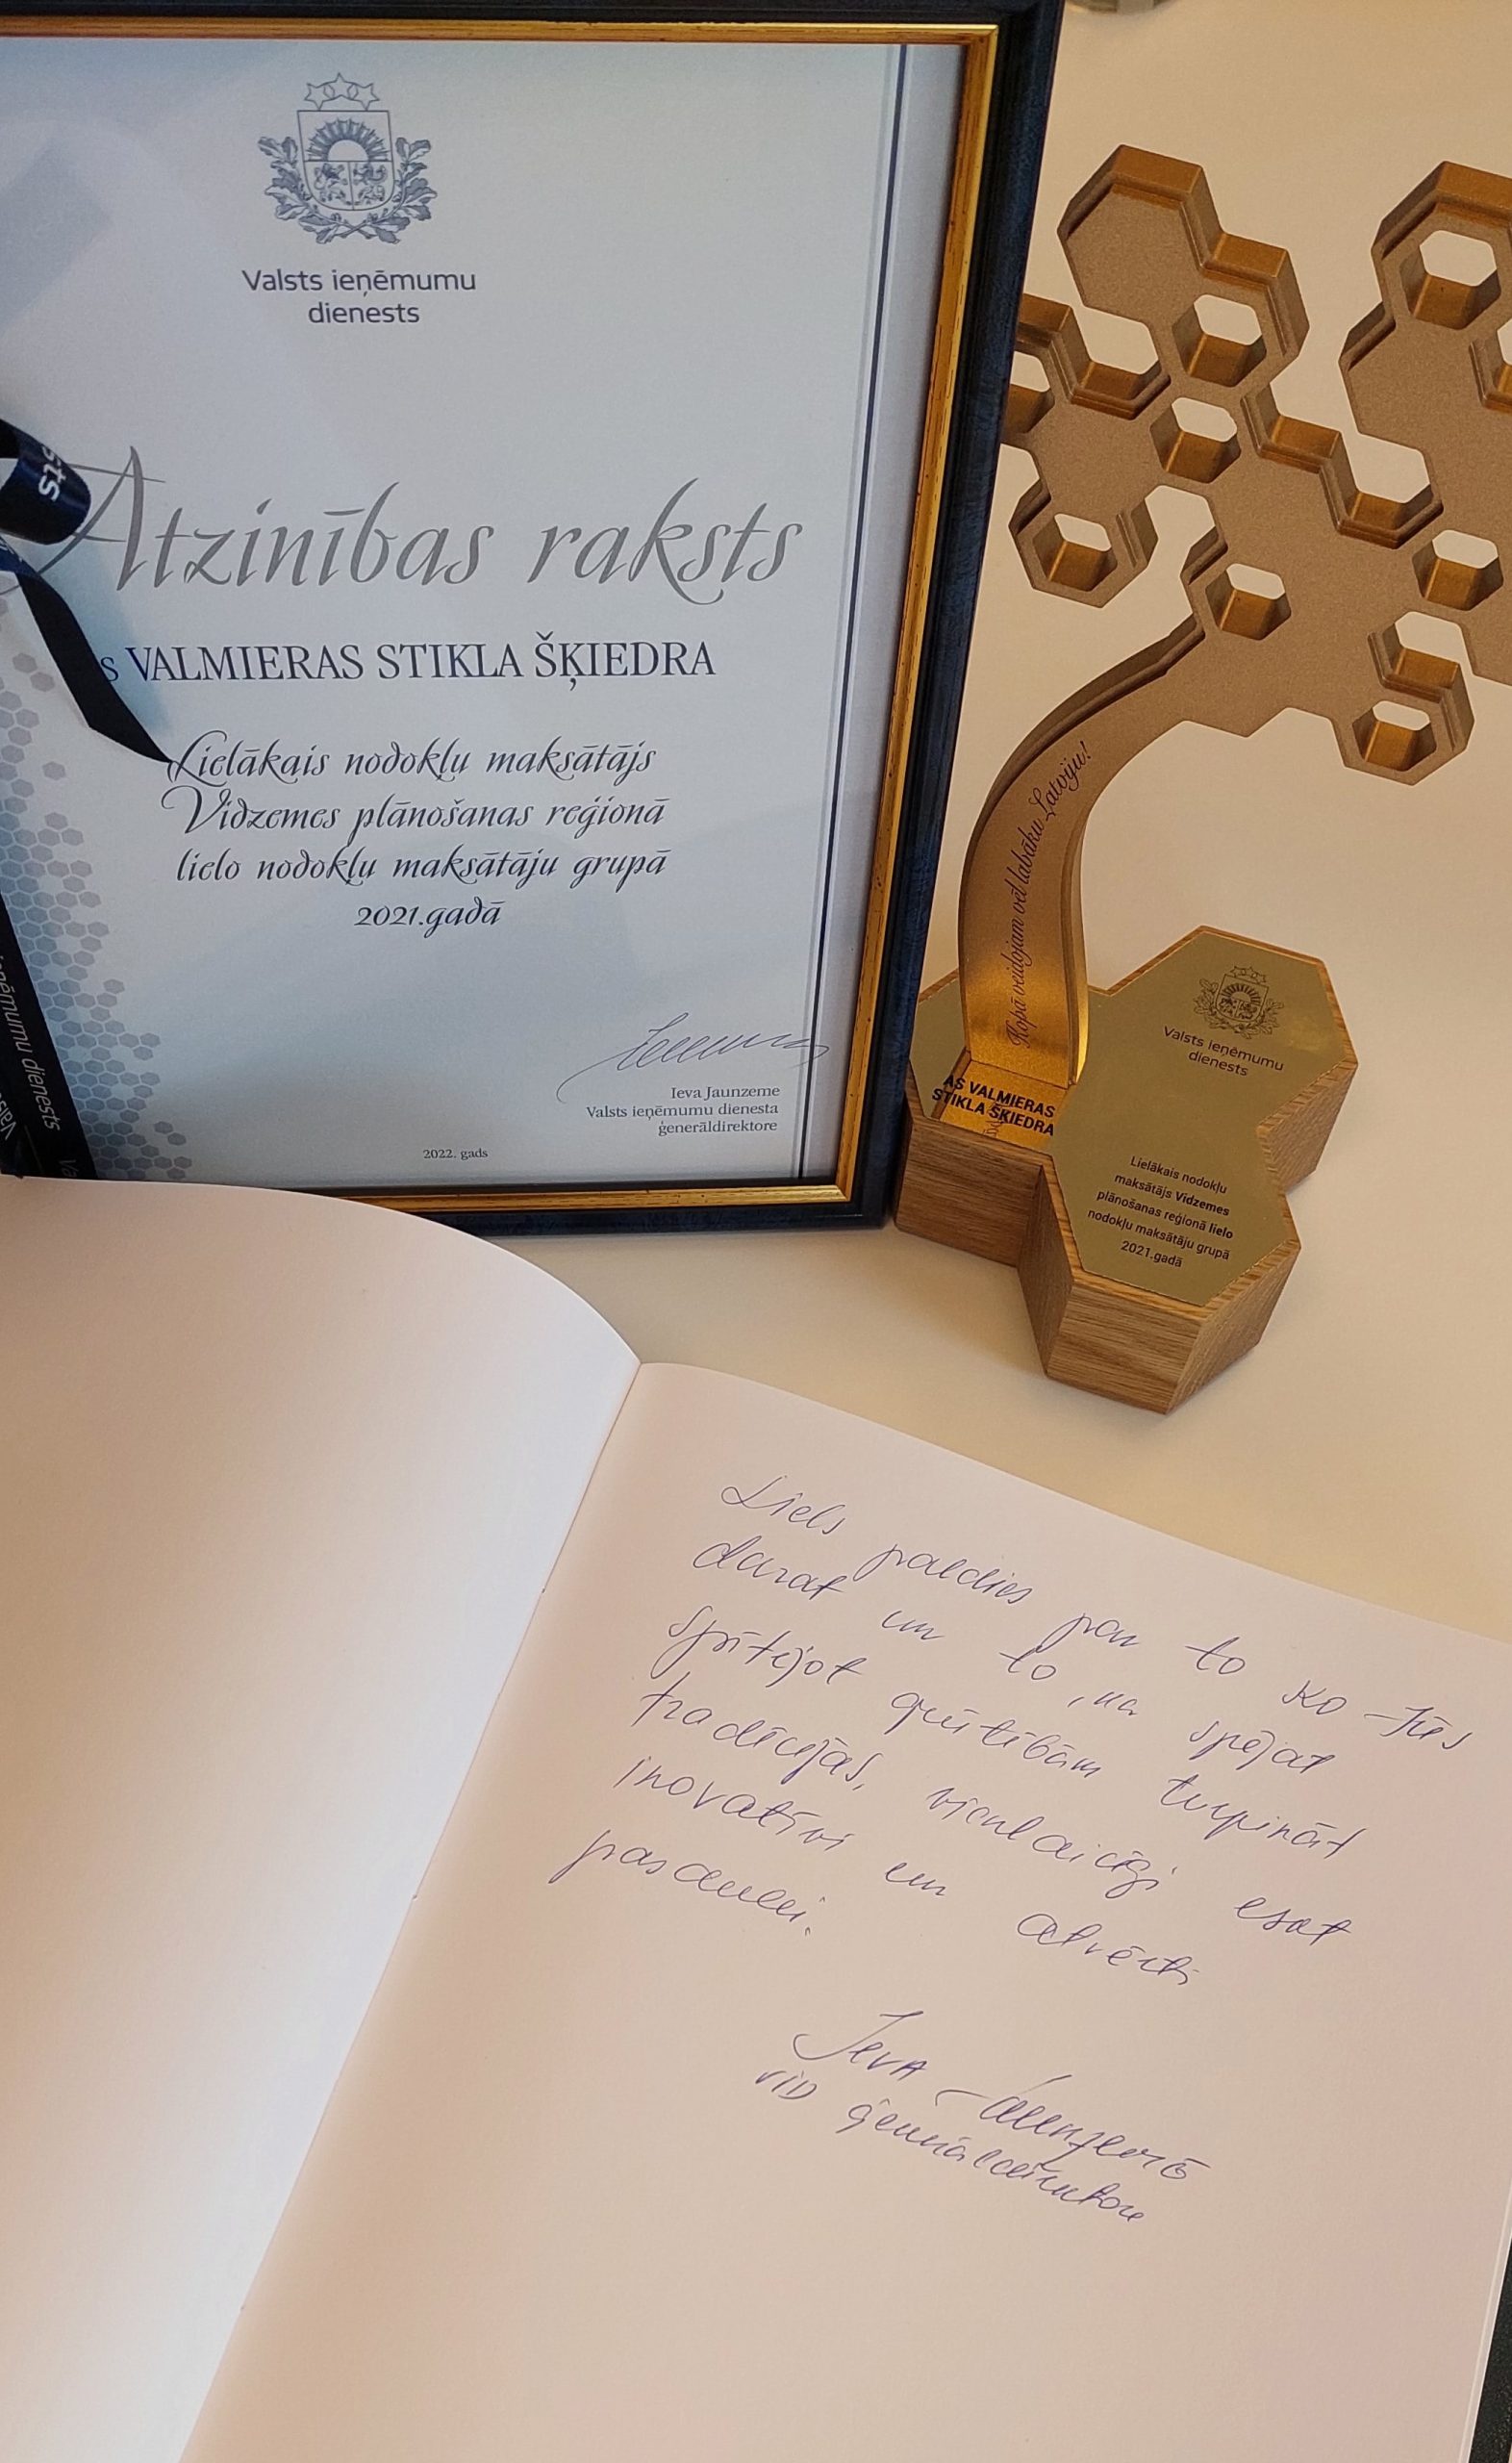 Valsts ieņēmumu
dienests
sts
Atzinības raksts
s VALMIERAS STIKLA ŠĶIEDRA
Lielākais nodokļu maksātājs
Vidzemes plānošanas reģionā
lielo nodokļu maksātāju grupā
2021.gadā
Ieva Jaunzeme
Valsts ieņēmumu dienesta
ģenerāldirektore
2022. gads
ieņēmumu dienests
Vals
Va
Kopā veidojam vēl labāku Latviju!
AS VALMIERAS
STIKLA ŠĶIEDRA
Valsts ieņēmumu
dienests
Lielākais nodokļu
maksātājs Vidzemes
plānošanas reģionā lielo
nodokļu maksātāju grupā
2021.gadā
Liels paldies par to ko Jūs
darat un to, ka spējat
spītējot grūtībām turpināt
tradīcijas, vienlaicīgi esat
inovatīvi un atvērti
pasaulei.
Ieva Jaunzeme
VID ģenerāldirektore